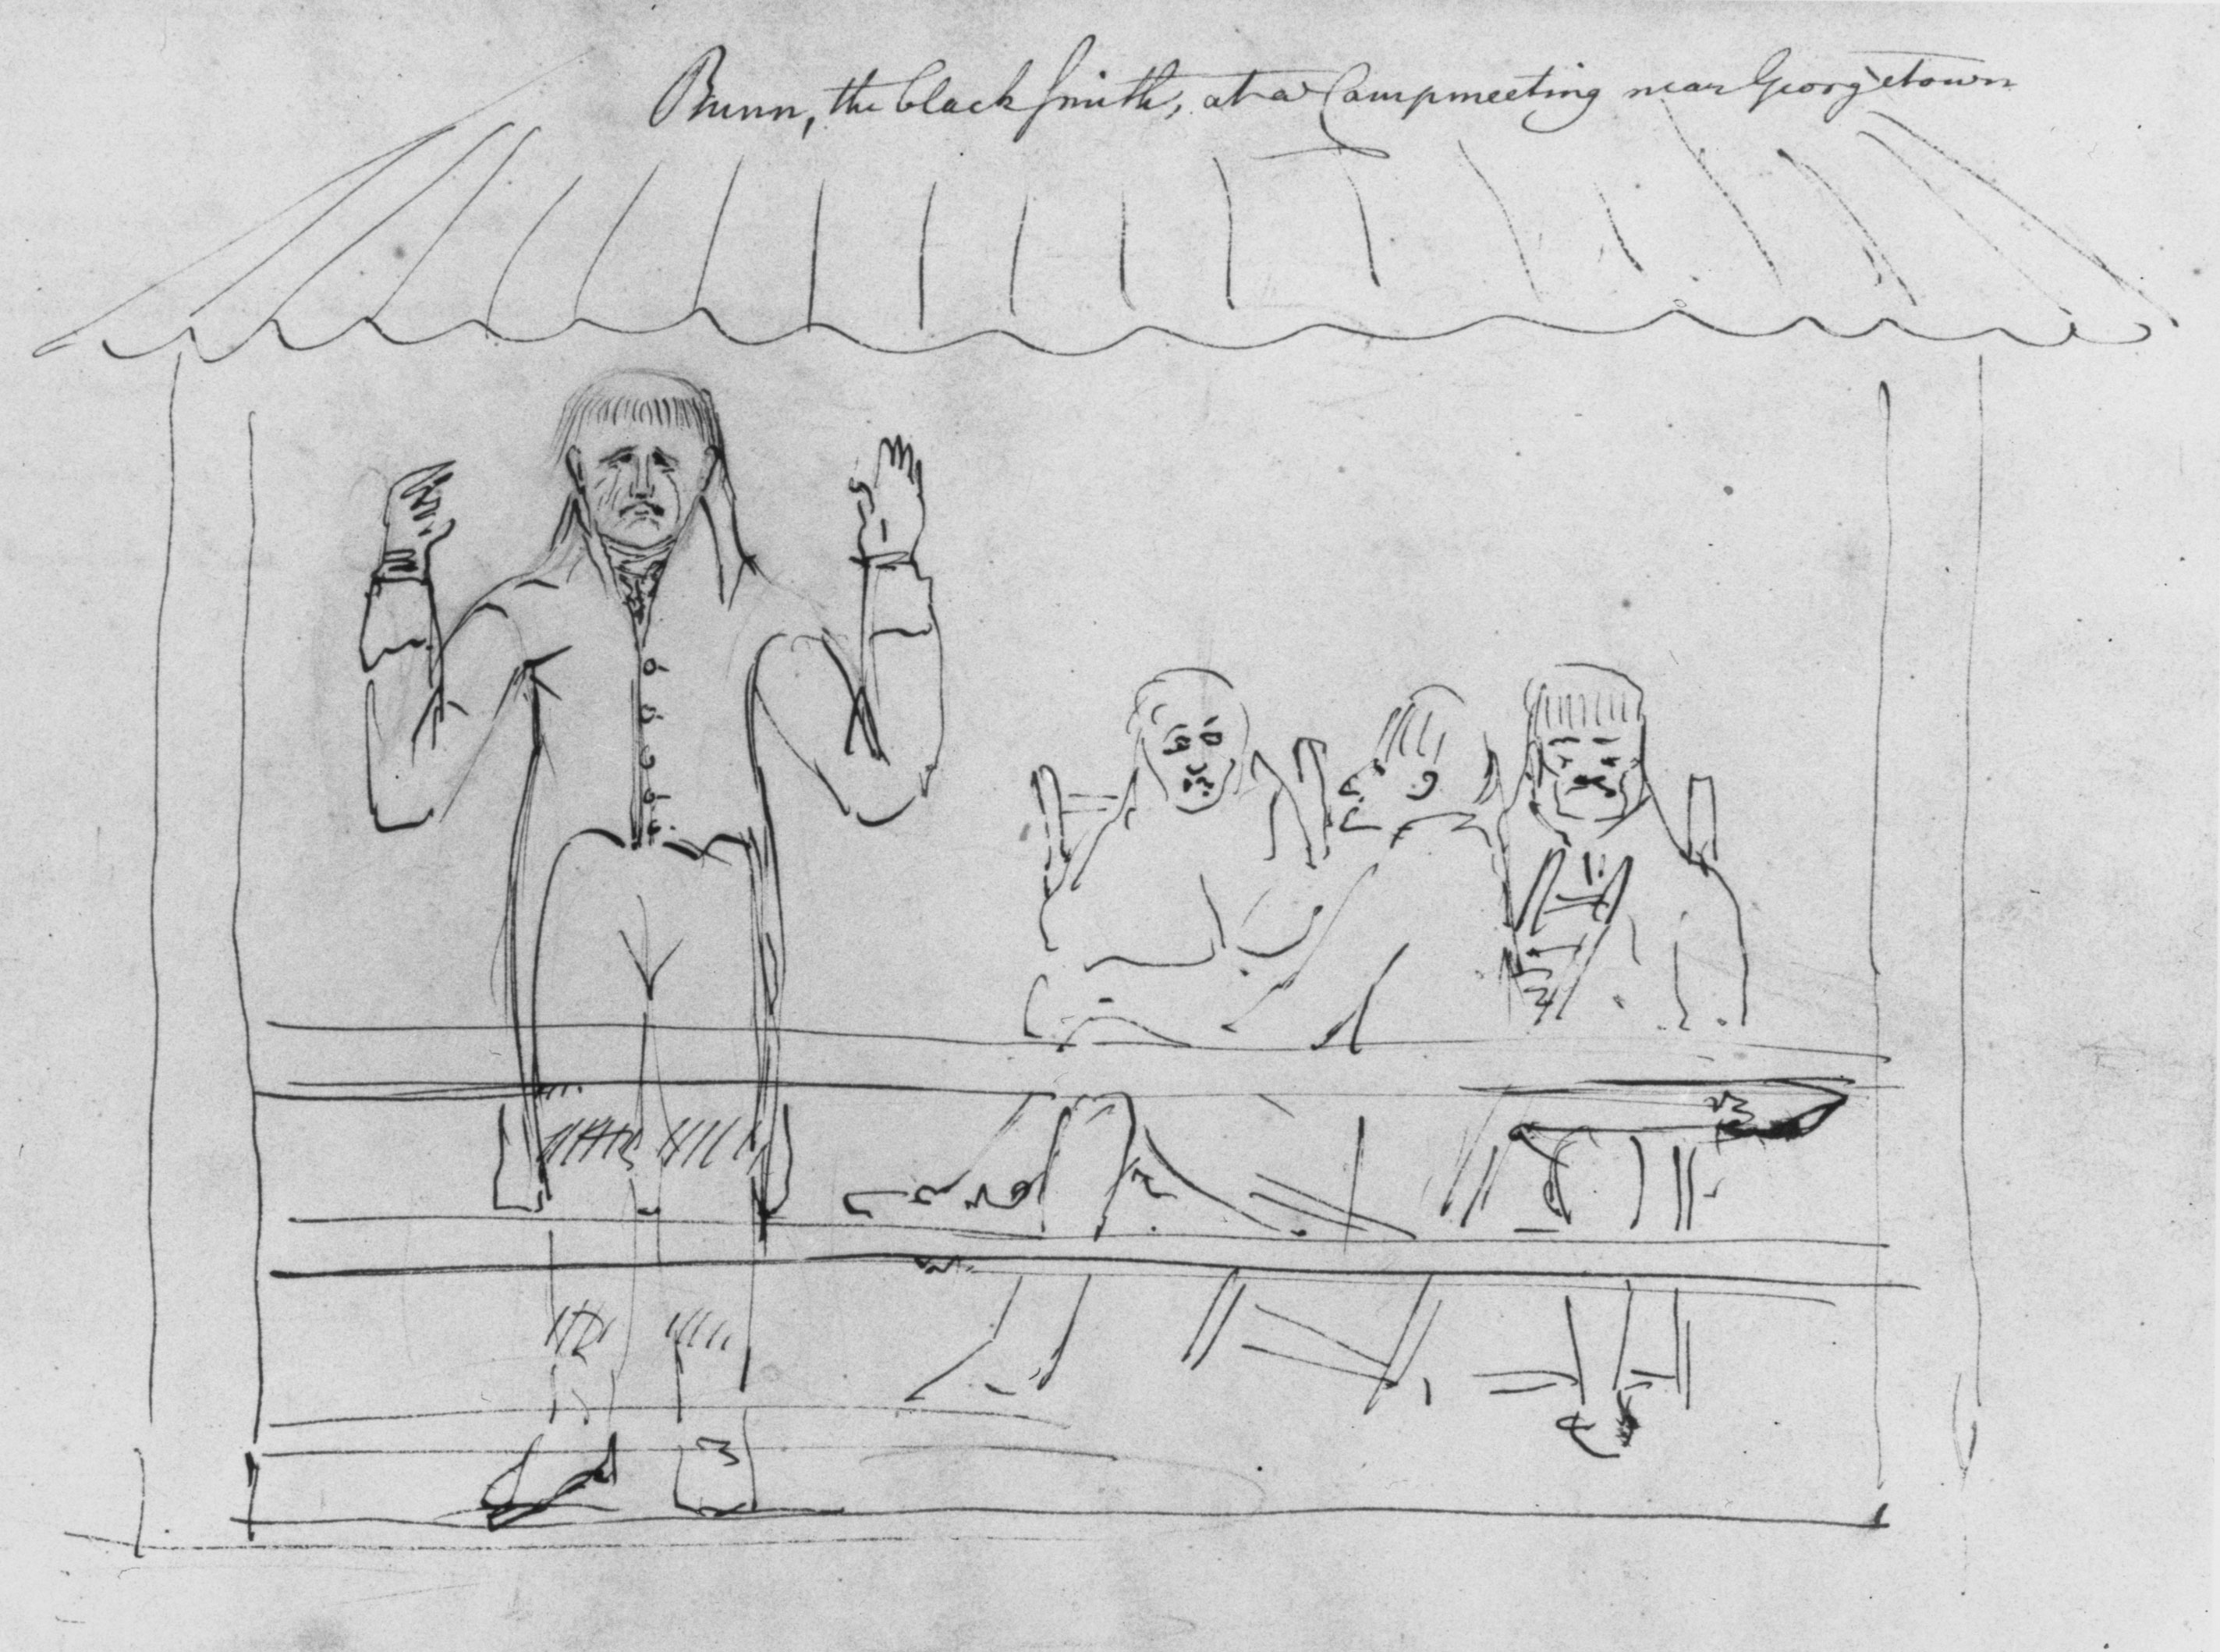 Bunn, the blacksmith, at a Campmeeting near Georgetown